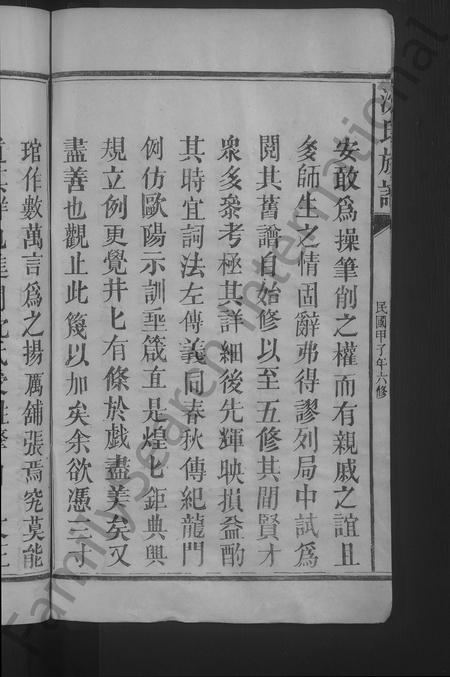 沈氏族譜
民國甲子年六修
安敢爲操筆削之權而有親戚之誼且
多師生之情固辭弗得謬列局中試爲
閱其舊譜自始修以至五修其間賢才
衆多叅考極其詳細後先輝映損益酌
其時宜詞法左傳義同春秋傳紀龍門
例仿歐陽示訓垂箴直是煌匕鉅典與
規立例更覺井匕有條於戲盡美矣又
盡善也觀止此篾以加矣余欲憑三寸
琯作數萬言爲之揚厲舖張焉究莫能
FamilySearch International